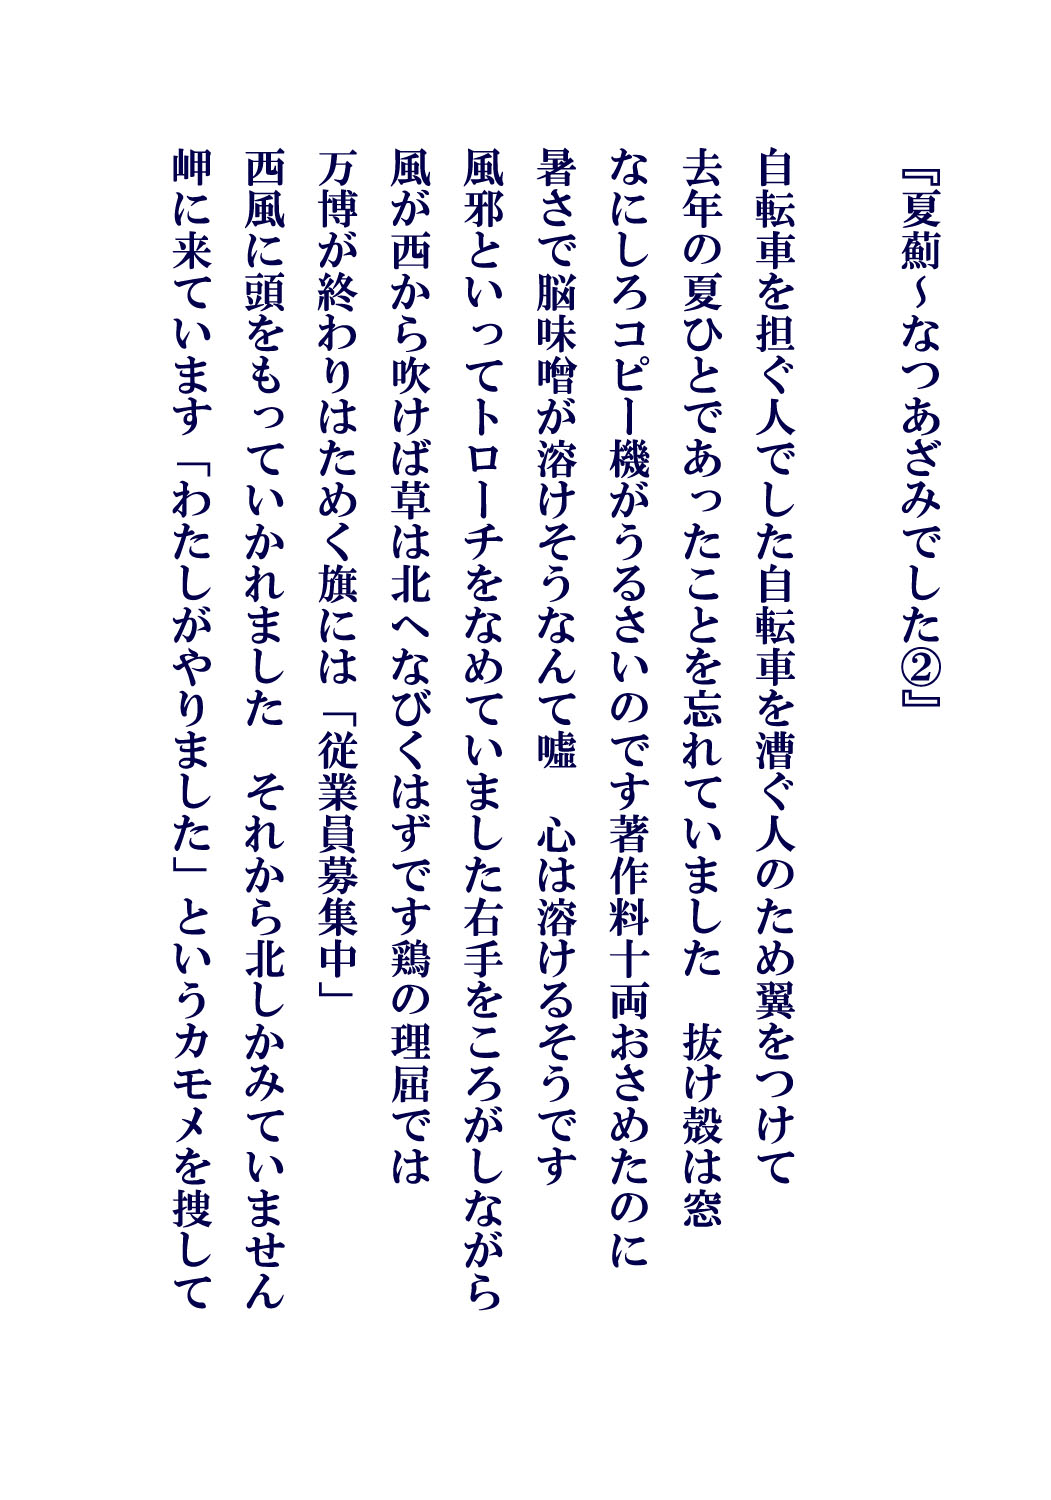 『夏薊～なつあざみでした②』
自転車を担ぐ人でした自転車を漕ぐ人のため翼をつけて
去年の夏ひとであったことを忘れていました　抜け殻は窓
なにしろコピー機がうるさいのです著作料十両おさめたのに
暑さで脳味噌が溶けそうなんて嘘　心は溶けるそうです
風邪といってトローチをなめていました右手をころがしながら
風が西から吹けば草は北へなびくはずです鶏の理屈では
万博が終わりはためく旗には「従業員募集中」
西風に頭をもっていかれました　それから北しかみていません
岬に来ています「わたしがやりました」というカモメを捜して